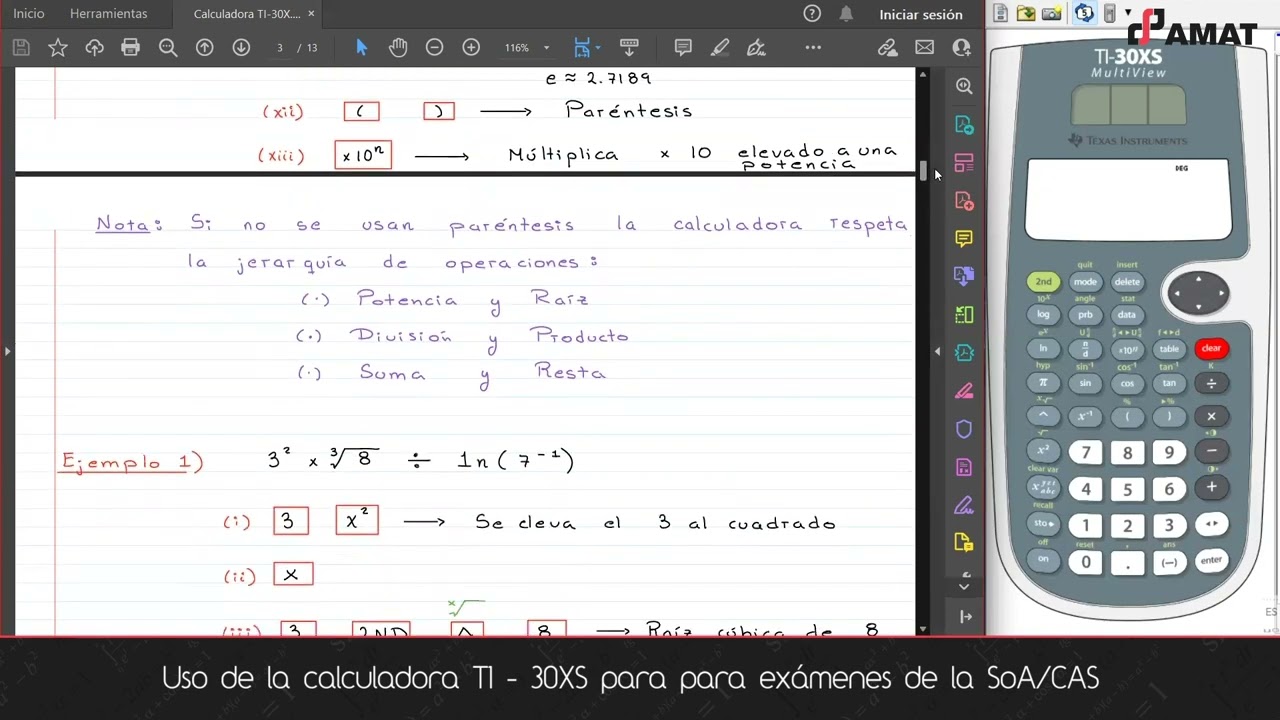 Inicio Herramientas Calculadora TI-30X.... × Iniciar sesión
3 / 13 116%
AMAT
e ≈ 2.7189
(xii) ( ) → Paréntesis
(xiii) ×10ⁿ → Múltiplica × 10 elevado a una potencia
Nota: Si no se usan paréntesis la calculadora respeta
la jerarquía de operaciones:
(·) Potencia y Raíz
(·) División y Producto
(·) Suma y Resta
Ejemplo 1) 3² × ∛8 ÷ ln(7⁻¹)
(i) 3 x² → Se eleva el 3 al cuadrado
(ii) x
ˣ√
(iii) 3 2ND ^ 8 → Raíz cúbica de 8
TI-30XS
MultiView
TEXAS INSTRUMENTS
DEG
quit insert
2nd mode delete
10ˣ angle stat
log prb data
eˣ f◄►d
ln n/d ×10ⁿ table clear
hyp sin⁻¹ cos⁻¹ tan⁻¹ K
π sin cos tan ÷
% ►%
^ x⁻¹ ( ) ×
√
x² 7 8 9 −
clear var
x yzt abc 4 5 6 +
recall
sto► 1 2 3 ◄►
off reset , ans
on 0 . (−) enter
ES
Uso de la calculadora TI - 30XS para para exámenes de la SoA/CAS